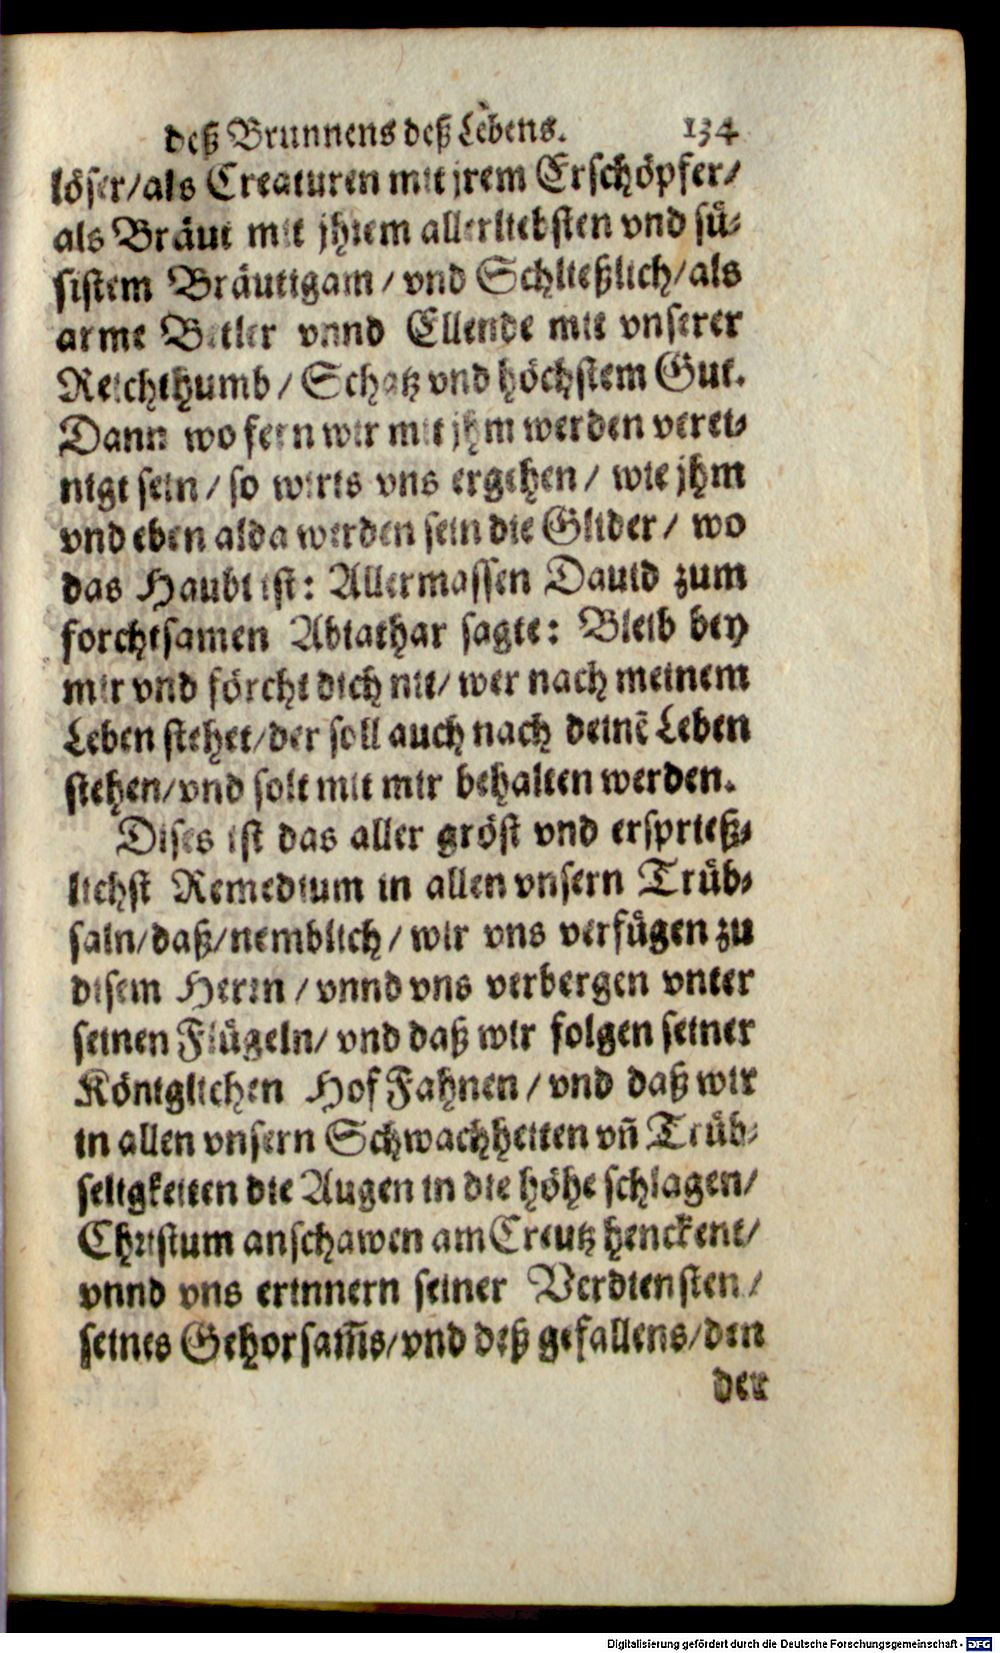 deß Brunnens deß Lebens. 134
löser/als Creaturen mit jrem Erschöpfer/
als Bräut mit jhrem allerliebsten vnd sü-
sistem Bräutigam / vnd Schließlich/als
arme Betler vnnd Ellende mit vnserer
Reichthumb / Schatz vnd höchstem Gut.
Dann wo fern wir mit jhm werden verei-
nigt sein / so wirts vns ergehen / wie jhm
vnd eben alda werden sein die Glider / wo
das Haubt ist: Allermassen Dauid zum
forchtsamen Abiathar sagte: Bleib bey
mir vnd förcht dich nit/ wer nach meinem
Leben stehet/der soll auch nach deinē Leben
stehen/vnd solt mit mir behalten werden.
Dises ist das aller gröst vnd ersprieß-
lichst Remedium in allen vnsern Trüb-
saln/daß/nemblich / wir vns verfügen zu
disem Herrn / vnnd vns verbergen vnter
seinen Flügeln/ vnd daß wir folgen seiner
Königlichen Hof Fahnen / vnd daß wir
in allen vnsern Schwachheiten vñ Trüb-
seligkeiten die Augen in die höhe schlagen/
Christum anschawen am Creutz henckent/
vnnd vns erinnern seiner Verdiensten /
seines Gehorsam̄s/vnd deß gefallens/den
der
Digitalisierung gefördert durch die Deutsche Forschungsgemeinschaft - DFG